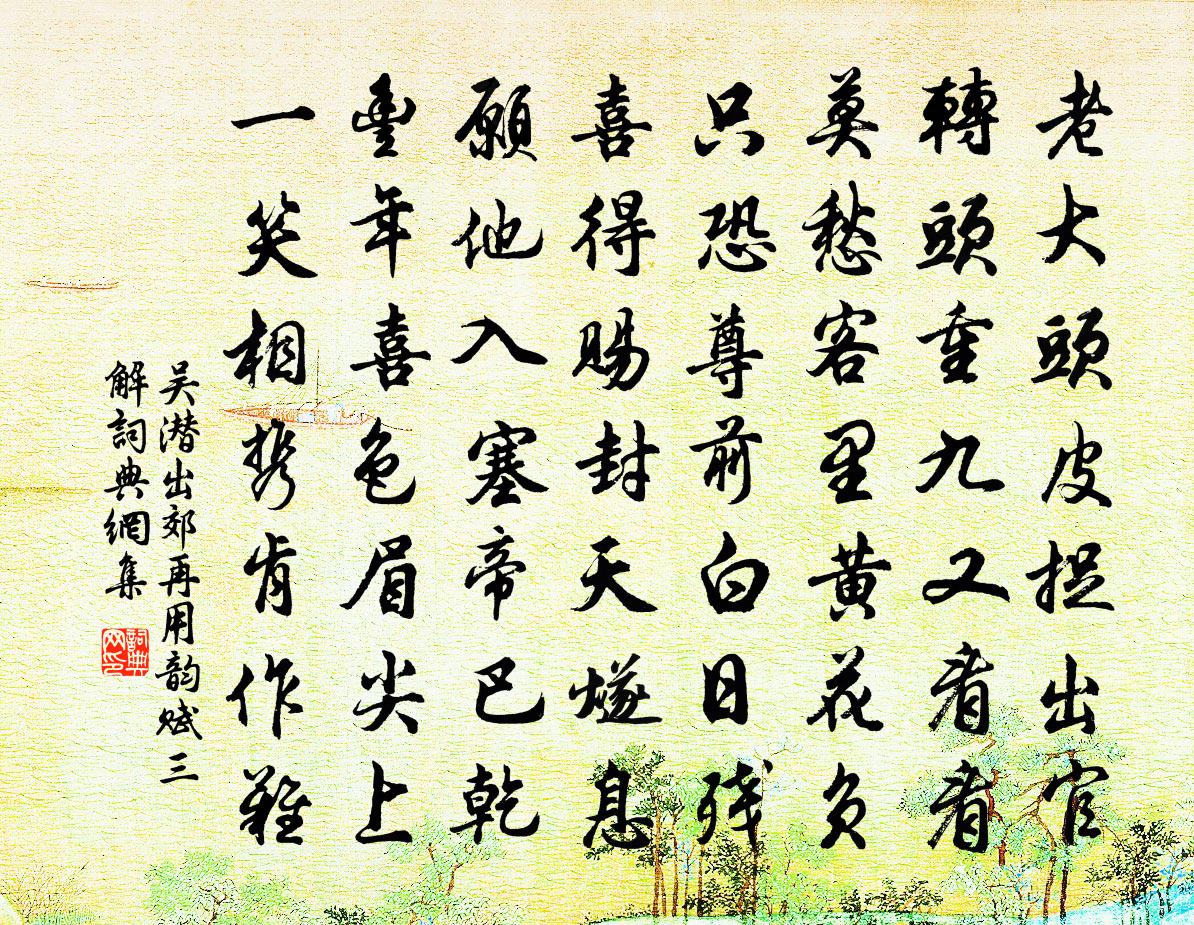 老大頭皮捉出官
轉頭重九又看看
莫愁客里黃花負
只恐尊前白日殘
喜得賜封天燧息
願他入塞帝巴乾
豐年喜色眉尖上
一笑相攜肯作難
吴潛出郊再用韵賦三
解詞典網集
詞典網印